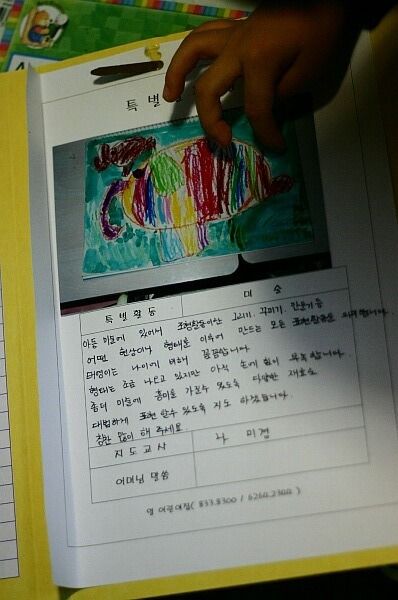 특별
특별활동 미술
아동 미술에 있어서 표현활동이란 그리기, 꾸미기, 만들기 등
어떤 현상이나 형태를 이루어 만드는 모든 표현활동을
태영이는 나이에 비해 꼼꼼합니다.
형태는 조금 나오고 있지만 아직 손에 힘이 부족합니다.
좀더 미술에 흥미를 가질수 있도록 다양한 재료로
대범하게 표현 할수 있도록 지도 하겠습니다.
칭찬 많이 해 주세요.
지도교사 나 미경
어머님 말씀
어린이집( 833.8300 / 6264.2344 )